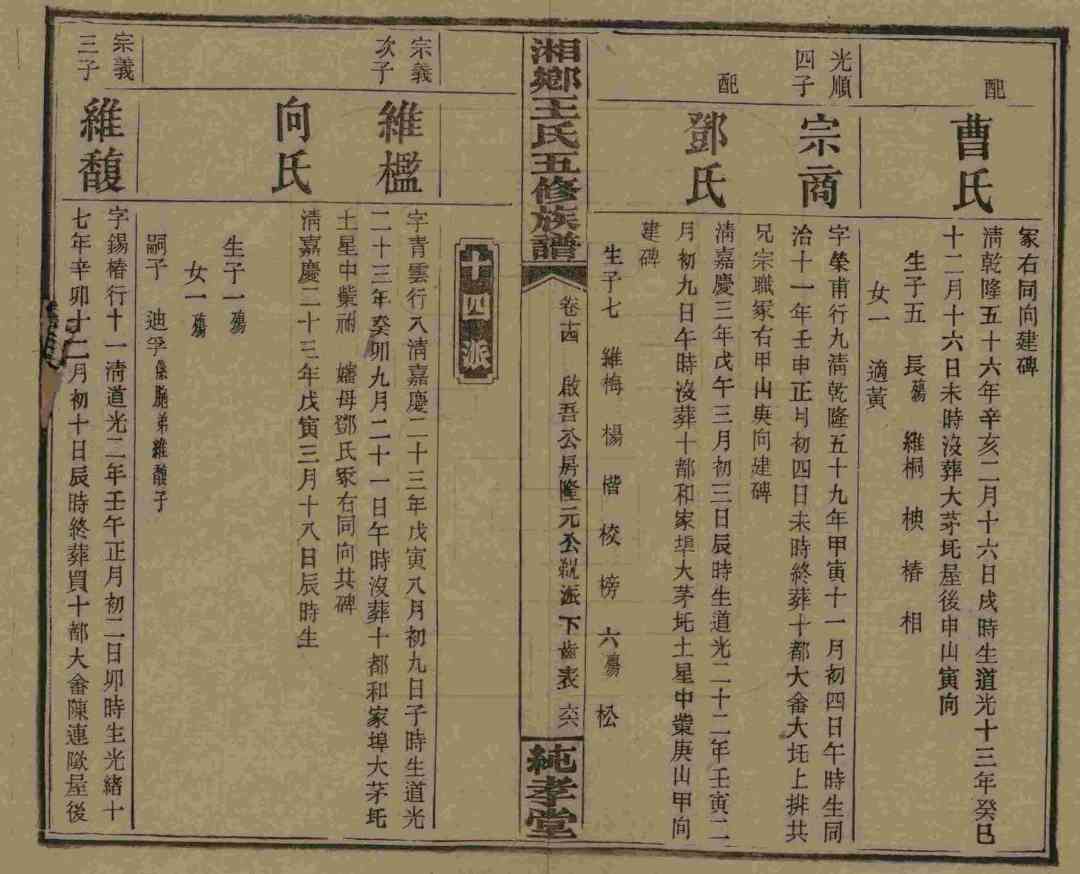 冢右同向建碑
配
曹氏
淸乾隆五十六年辛亥二月十六日戌時生道光十三年癸巳
十二月十六日未時沒葬大茅坵屋後申山寅向
生子五 長殤 維桐 椣 椿 相
女一 適黃
光順
四子
宗商
字榮甫行九淸乾隆五十九年甲寅十一月初四日午時生同
治十一年壬申正月初四日未時終葬十都大畲大坵上排共
兄宗職冢右甲山庚向建碑
配
鄧氏
淸嘉慶三年戊午三月初三日辰時生道光二十二年壬寅二
月初九日午時沒葬十都和家埠大茅坵土星中藂庚山甲向
建碑
生子七 維梅 楊 楷 校 榜 六殤 松
湘鄉王氏五修族譜
卷十四 啟吾公房隆元公派下齒表 六
純孝堂
十四派
宗義
次子
維檻
字青雲行八淸嘉慶二十三年戊寅八月初九日子時生道光
二十三年癸卯九月二十一日午時沒葬十都和家埠大茅坵
土星中藂祔 嬸母鄧氏冢右同向共碑
向氏
淸嘉慶二十三年戊寅三月十八日辰時生
生子一殤
女一殤
嗣子 迪孚係胞弟維馥子
宗義
三子
維馥
字錫椿行十一淸道光二年壬午正月初二日卯時生光緒十
七年辛卯十二月初十日辰時終葬買十都大畲陳連歐屋後